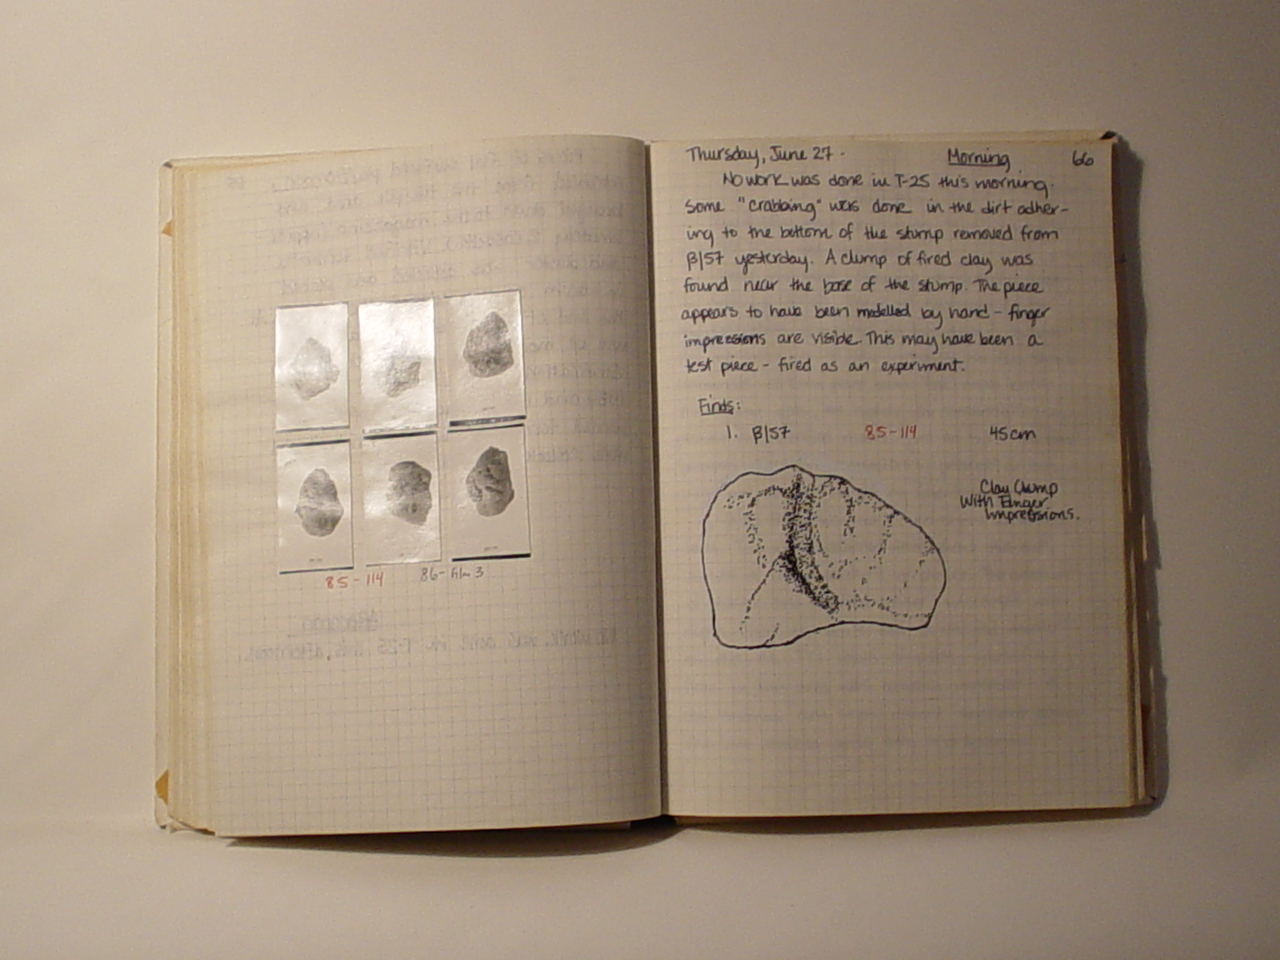 85-114 86-film 3
Thursday, June 27 - Morning 66
No work was done in T-25 this morning.
Some "crabbing" was done in the dirt adher-
ing to the bottom of the stump removed from
β/57 yesterday. A clump of fired clay was
found near the base of the stump. The piece
appears to have been modelled by hand - finger
impressions are visible. This may have been a
test piece - fired as an experiment.
Finds:
1. β/57 85-114 45cm
Clay Clump
With Finger
Impressions.